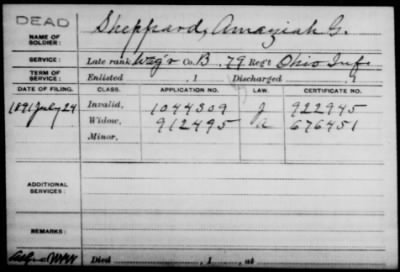 DEAD
NAME OF SOLDIER: Sheppard, Amaziah G.
SERVICE: Late rank Wag'r Co. B, 79 Reg't Ohio Inf.
TERM OF SERVICE: Enlisted , 1 Discharged , 1
DATE OF FILING. CLASS. APPLICATION NO. LAW. CERTIFICATE NO.
1891 July 24 Invalid, 1044309 J 922945
Widow, 912495 a 676451
Minor,
ADDITIONAL SERVICES:
REMARKS:
Died , 1 , at